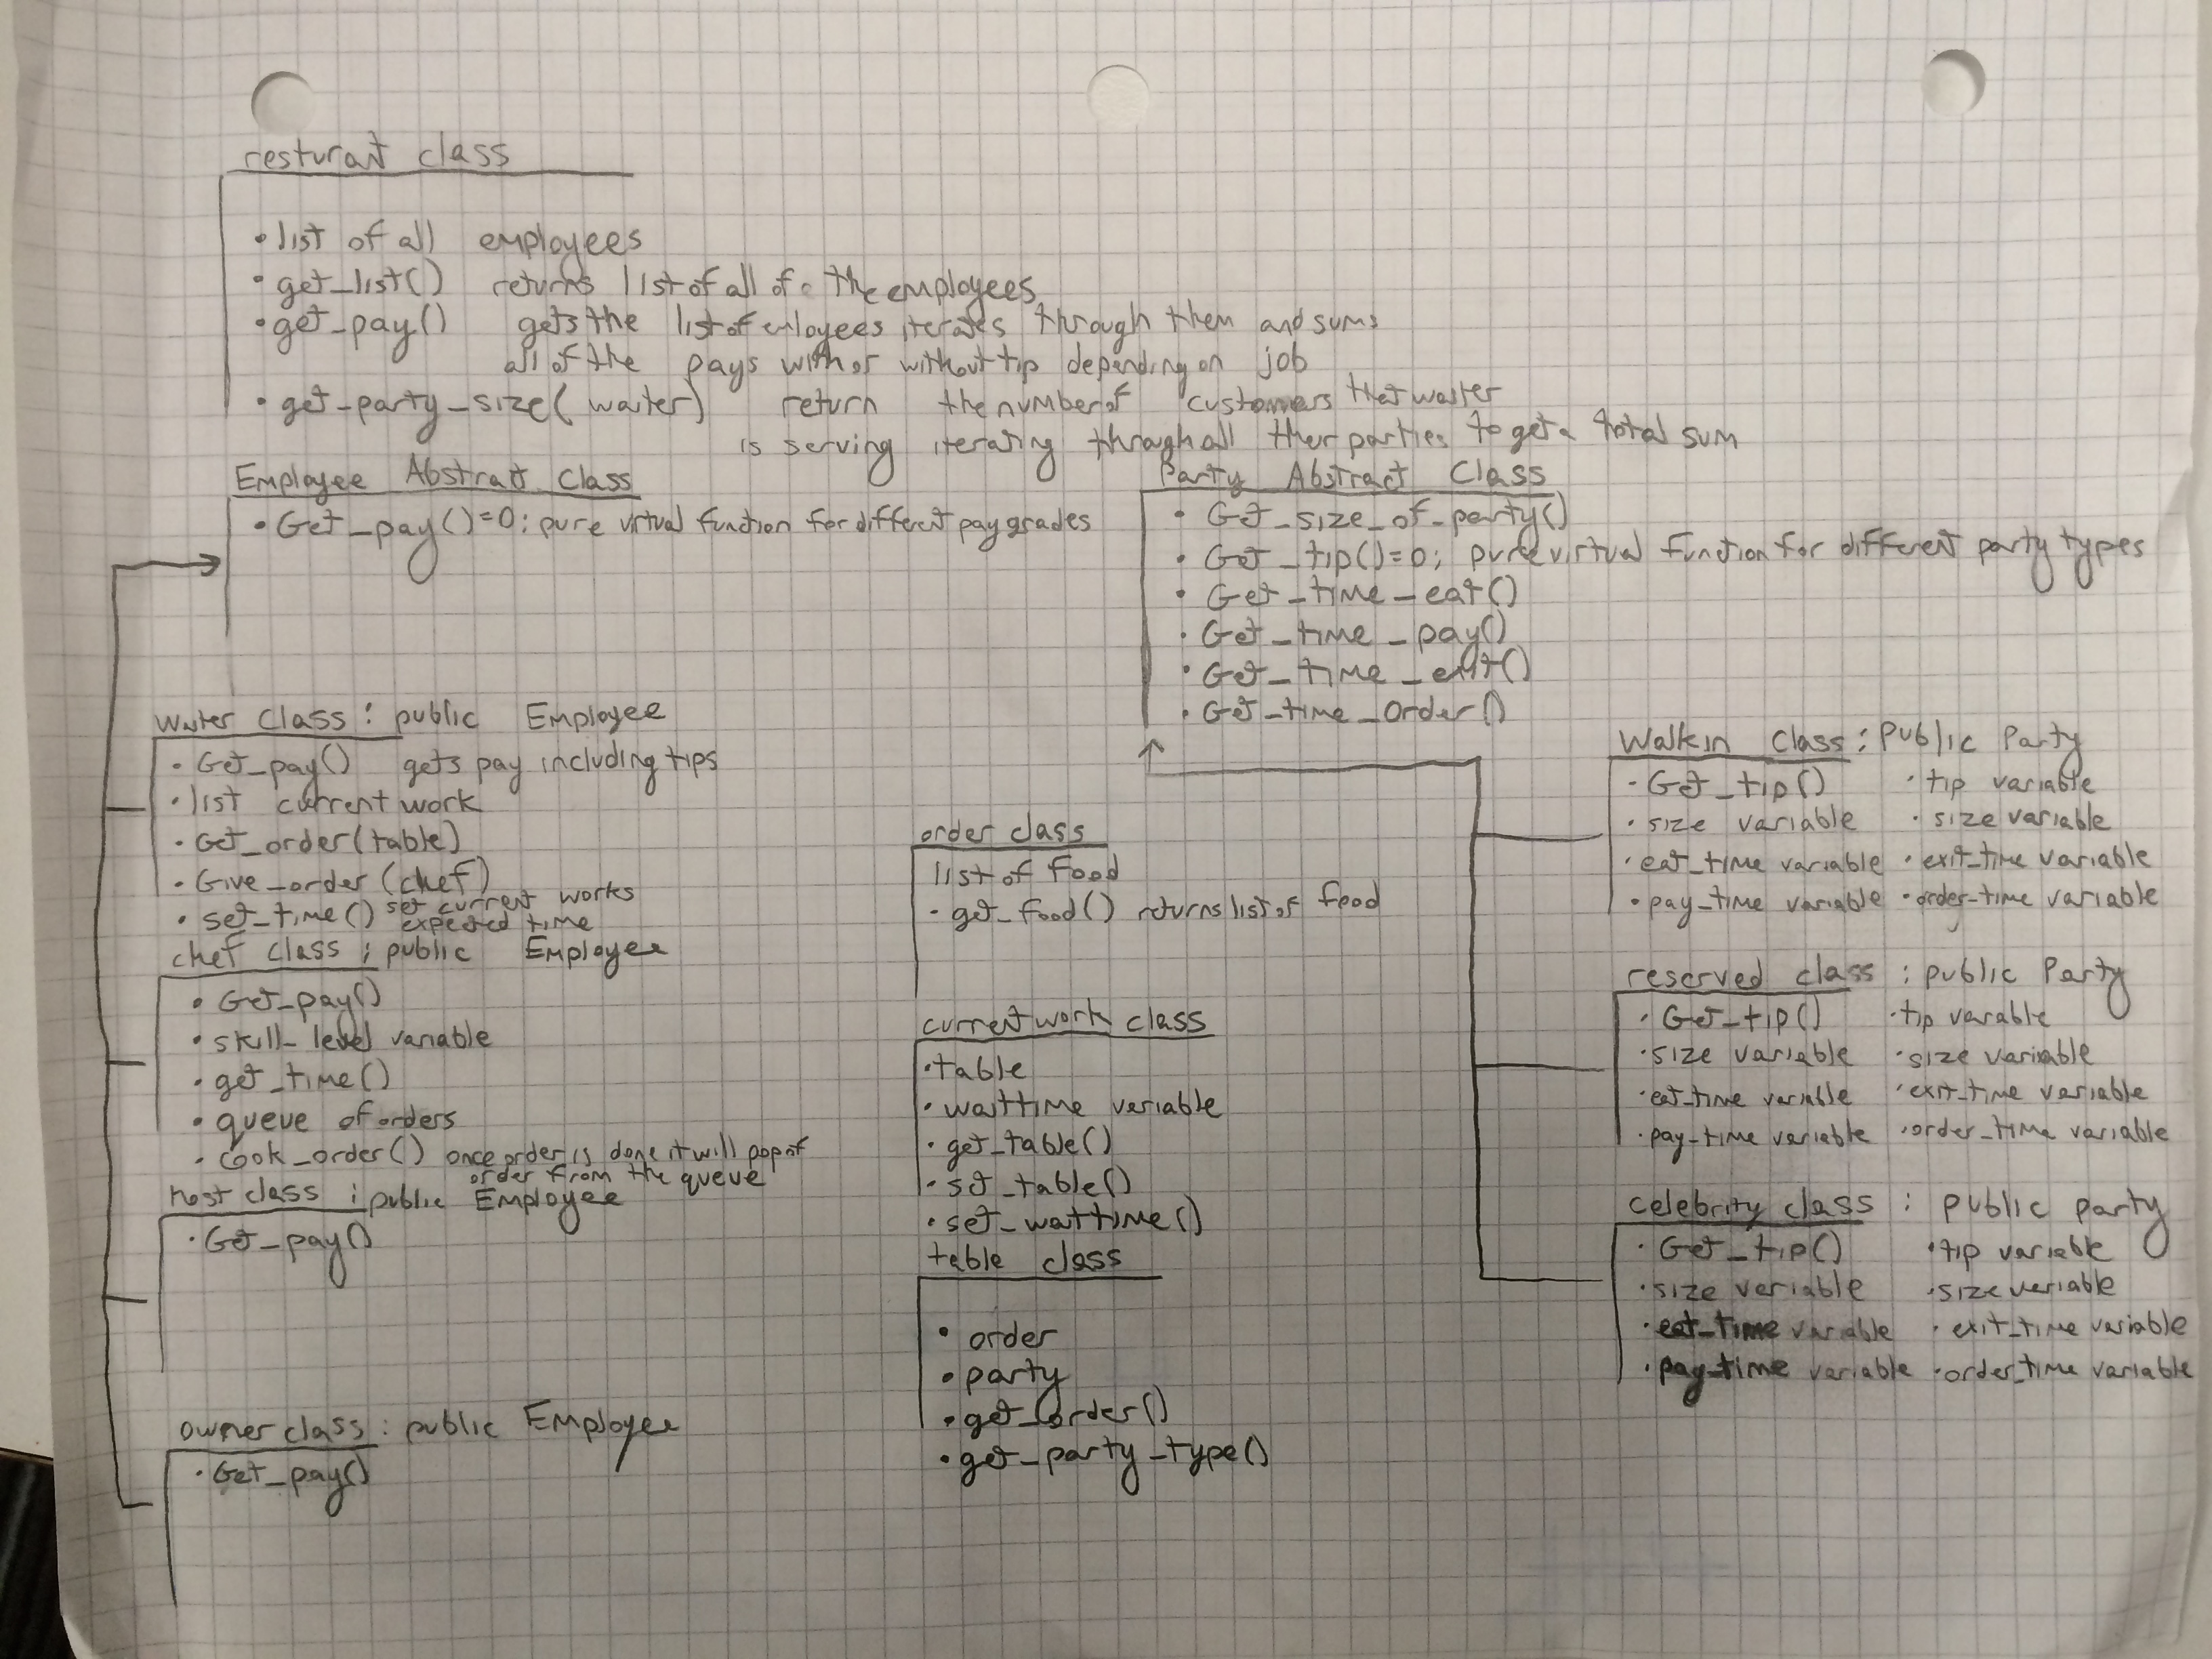 resturant class
• list of all employees
• get_list() returns list of all of the employees
• get_pay() gets the list of emloyees iterates through them and sums
all of the pays with or without tip depending on job
• get-party-size( waiter) return the number of customers that waiter
is serving iterating through all their parties to get a total sum
Employee Abstract Class
• Get_pay()=0; pure virtual function for different pay grades
Party Abstract Class
• Get_size_of_party()
• Get_tip()=0; pure virtual function for different party types
• Get_time_eat()
• Get_time_pay()
• Get_time_exit()
• Get_time_Order()
waiter class : public Employee
• Get_pay() gets pay including tips
• list current work
• Get_order(table)
• Give_order (chef)
• set_time() set current works
expected time
chef class : public Employee
• Get_pay()
• skill_level variable
• get_time()
• queue of orders
• Cook_order() once order is done it will pop of
order from the queue
host class : public Employee
• Get_pay()
owner class : public Employee
• Get_pay()
order class
list of Food
- get_food() returns list of food
current work class
• table
• waittime variable
• get_table()
• set_table()
• set_waittime()
table class
• order
• party
• get_order()
• get_party_type()
Walkin Class : Public Party
• Get_tip() • tip variable
• size variable • size variable
• eat_time variable • exit_time variable
• pay_time variable • order_time variable
reserved class : public Party
• Get_tip() • tip varable
• size variable • size variable
• eat_time variable • exit_time variable
• pay_time variable • order_time variable
celebrity class : public party
• Get_tip() • tip variable
• size variable • size variable
• eat_time variable • exit_time variable
• pay_time variable • order_time variable